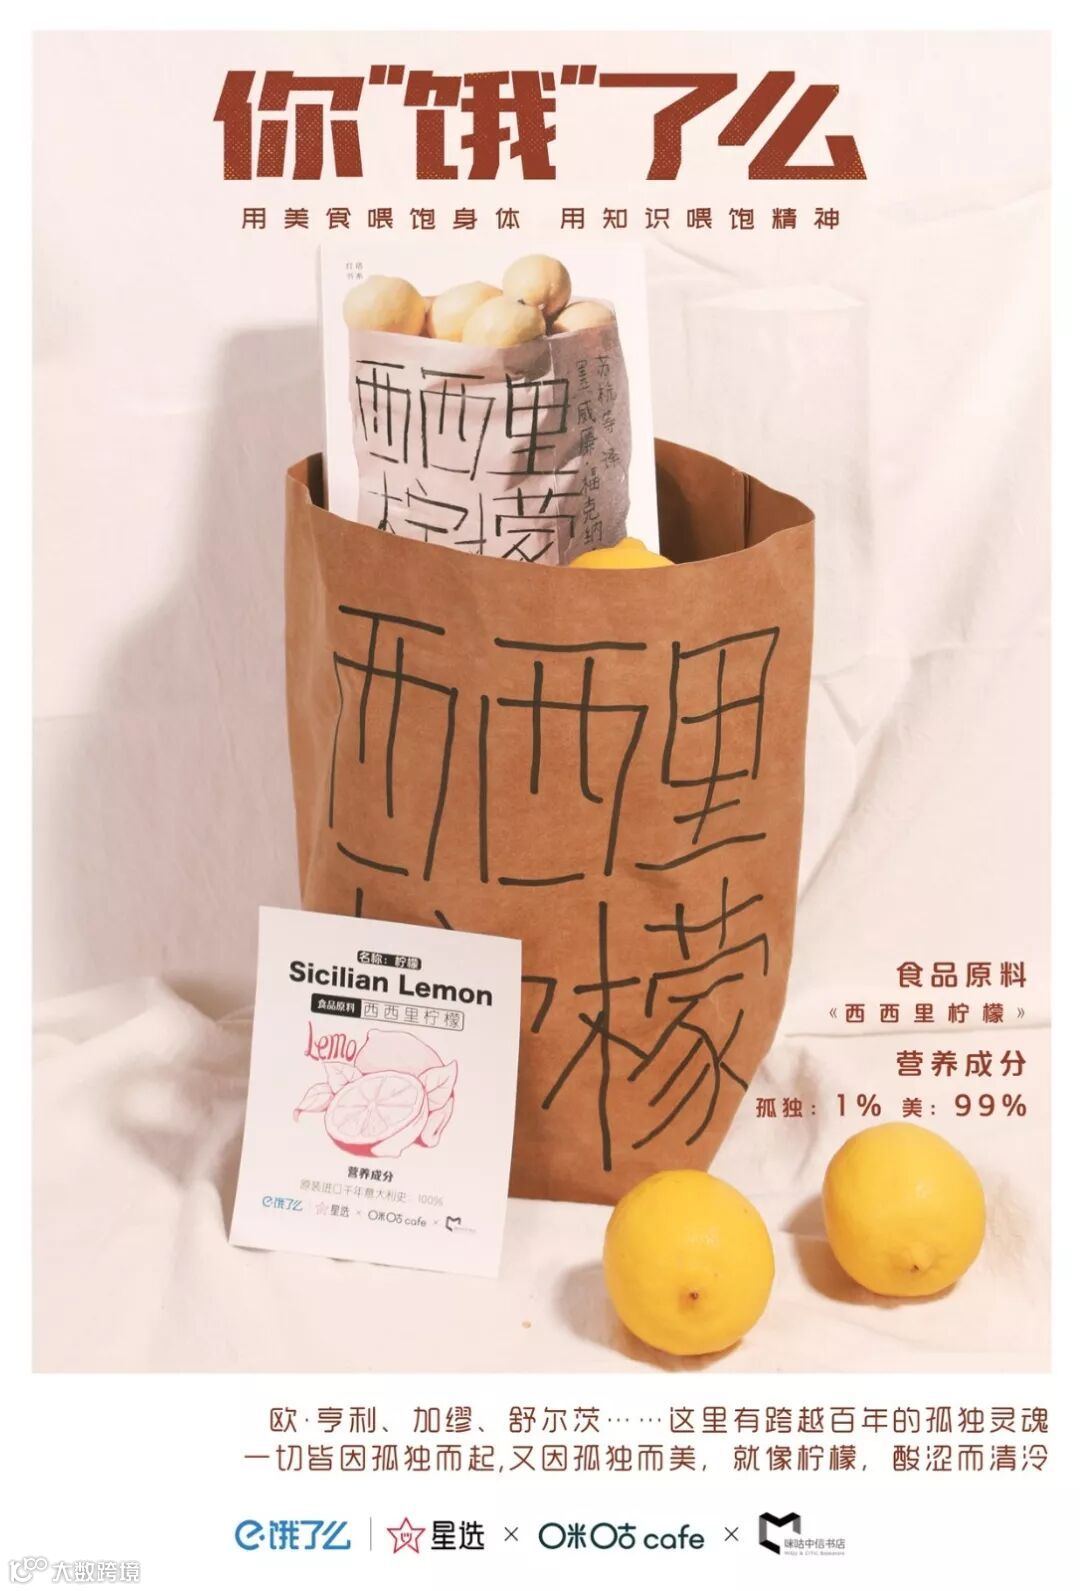 你"饿"了么
用美食喂饱身体 用知识喂饱精神
灯塔
书系
西西里
柠檬
苏杭等 译
威廉·福克纳
西西里
柠檬
名称：柠檬
Sicilian Lemon
食品原料 西西里柠檬
Lemo
营养成分
原装进口千年意大利史：100%
饿了么 星选 × 咪咕cafe ×
食品原料
《西西里柠檬》
营养成分
孤独：1% 美：99%
欧·亨利、加缪、舒尔茨……这里有跨越百年的孤独灵魂
一切皆因孤独而起,又因孤独而美，就像柠檬，酸涩而清泠
饿了么 | 星选 × 咪咕cafe × 咪咕中信书店
大数跨境